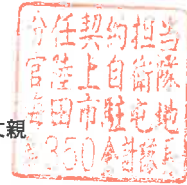 分任契約担当
官陸上自衛隊
田市駐屯地
350会計隊長
親